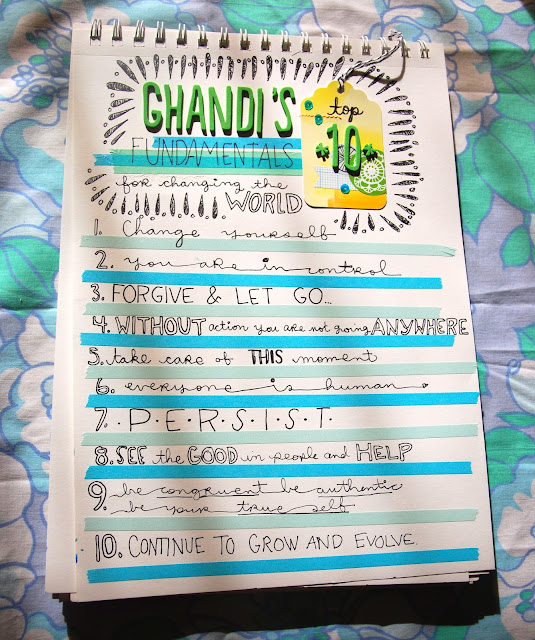 GHANDI'S
top
10
FUNDAMENTALS
for changing the
WORLD
1. Change yourself
2. you are in control
3. FORGIVE & LET GO...
4. WITHOUT action you are not going ANYWHERE
5. take care of THIS moment
6. everyone is human
7. P.E.R.S.I.S.T.
8. SEE the GOOD in people and HELP
9. be congruent be authentic
be your true self
10. CONTINUE TO GROW AND EVOLVE.